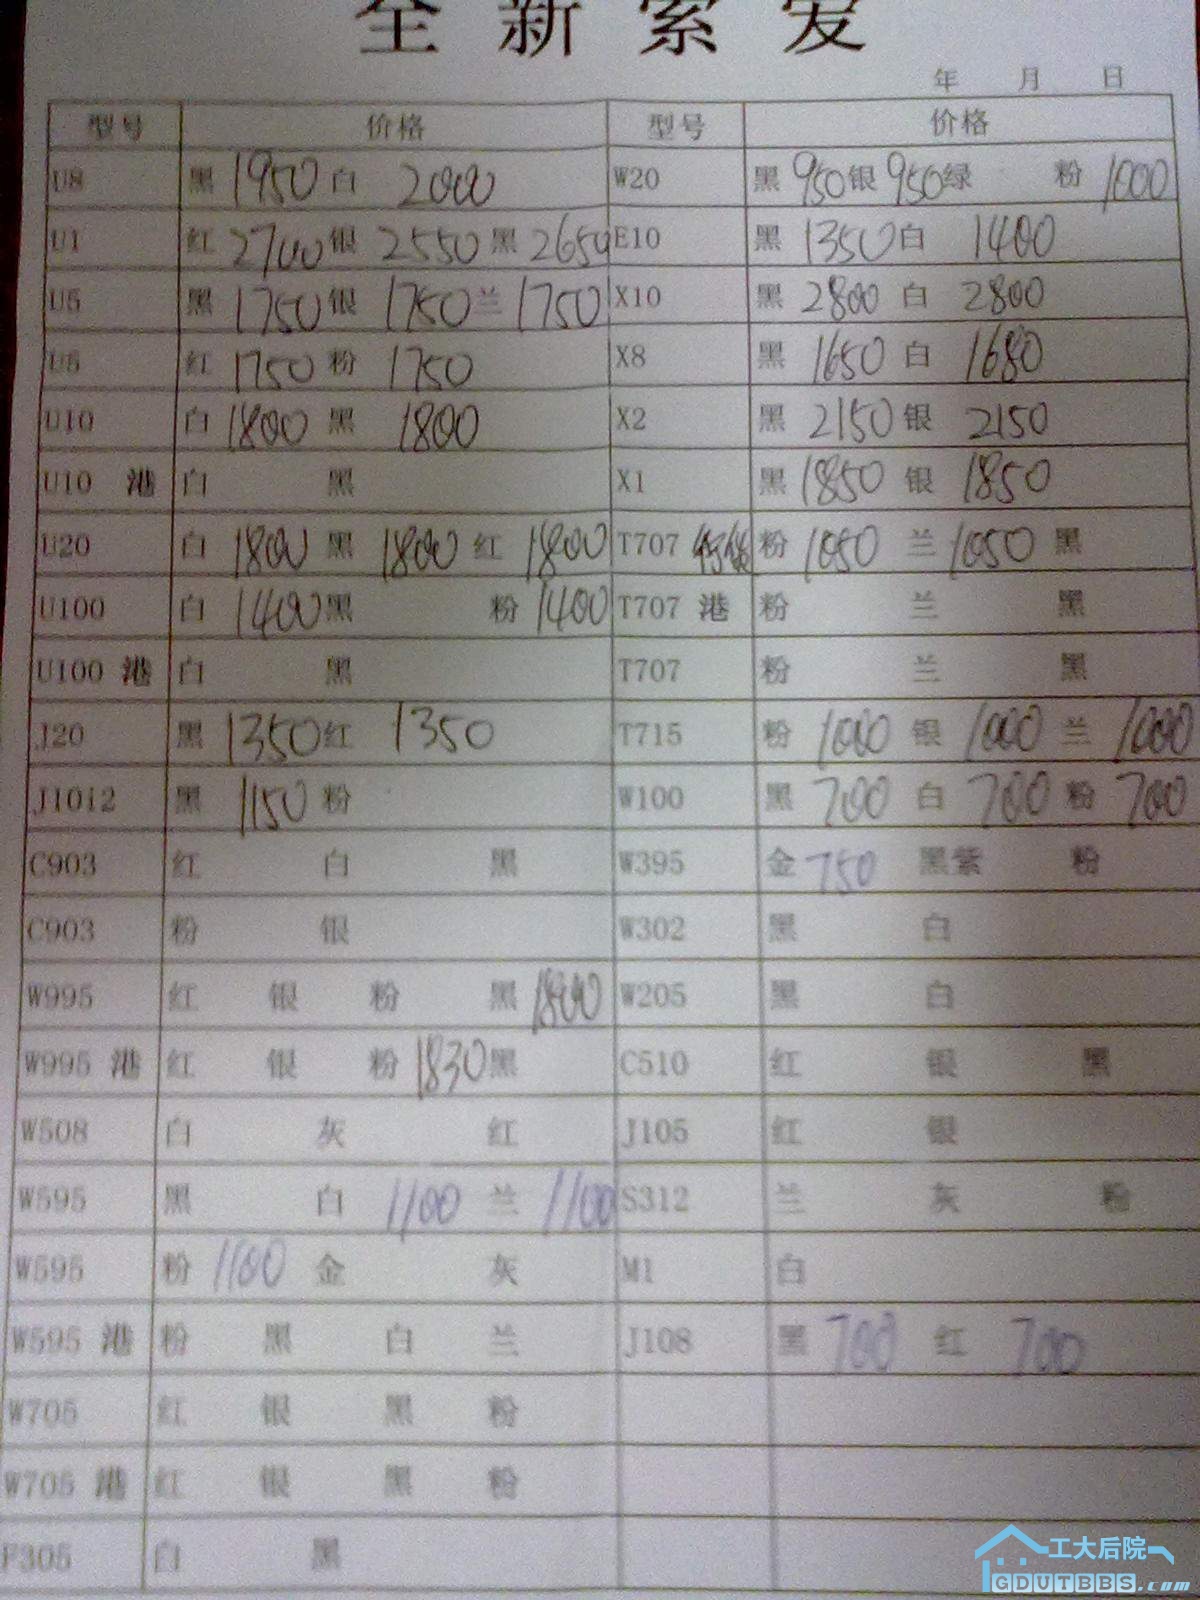 全新索爱
年 月 日
型号 价格 型号 价格
U8 黑 1950 白 2000 W20 黑 950 银 950 绿 粉 1000
U1 红 2700 银 2550 黑 2650 E10 黑 1350 白 1400
U5 黑 1750 银 1750 兰 1750 X10 黑 2800 白 2800
U5 红 1750 粉 1750 X8 黑 1650 白 1680
U10 白 1800 黑 1800 X2 黑 2150 银 2150
U10 港 白 黑 X1 黑 1850 银 1850
U20 白 1800 黑 1800 红 1800 T707 行货 粉 1050 兰 1050 黑
U100 白 1400 黑 粉 1400 T707 港 粉 兰 黑
U100 港 白 黑 T707 粉 兰 黑
J20 黑 1350 红 1350 T715 粉 1000 银 1000 兰 1000
J10i2 黑 1150 粉 W100 黑 700 白 700 粉 700
C903 红 白 黑 W395 金 750 黑紫 粉
C903 粉 银 W302 黑 白
W995 红 银 粉 黑 1800 W205 黑 白
W995 港 红 银 粉 1830 黑 C510 红 银 黑
W508 白 灰 红 J105 红 银
W595 黑 白 1100 兰 1100 S312 兰 灰 粉
W595 粉 1100 金 灰 M1 白
W595 港 粉 黑 白 兰 J108 黑 700 红 700
W705 红 银 黑 粉
W705 港 红 银 黑 粉
F305 白 黑
工大后院
GDUTBBS.com